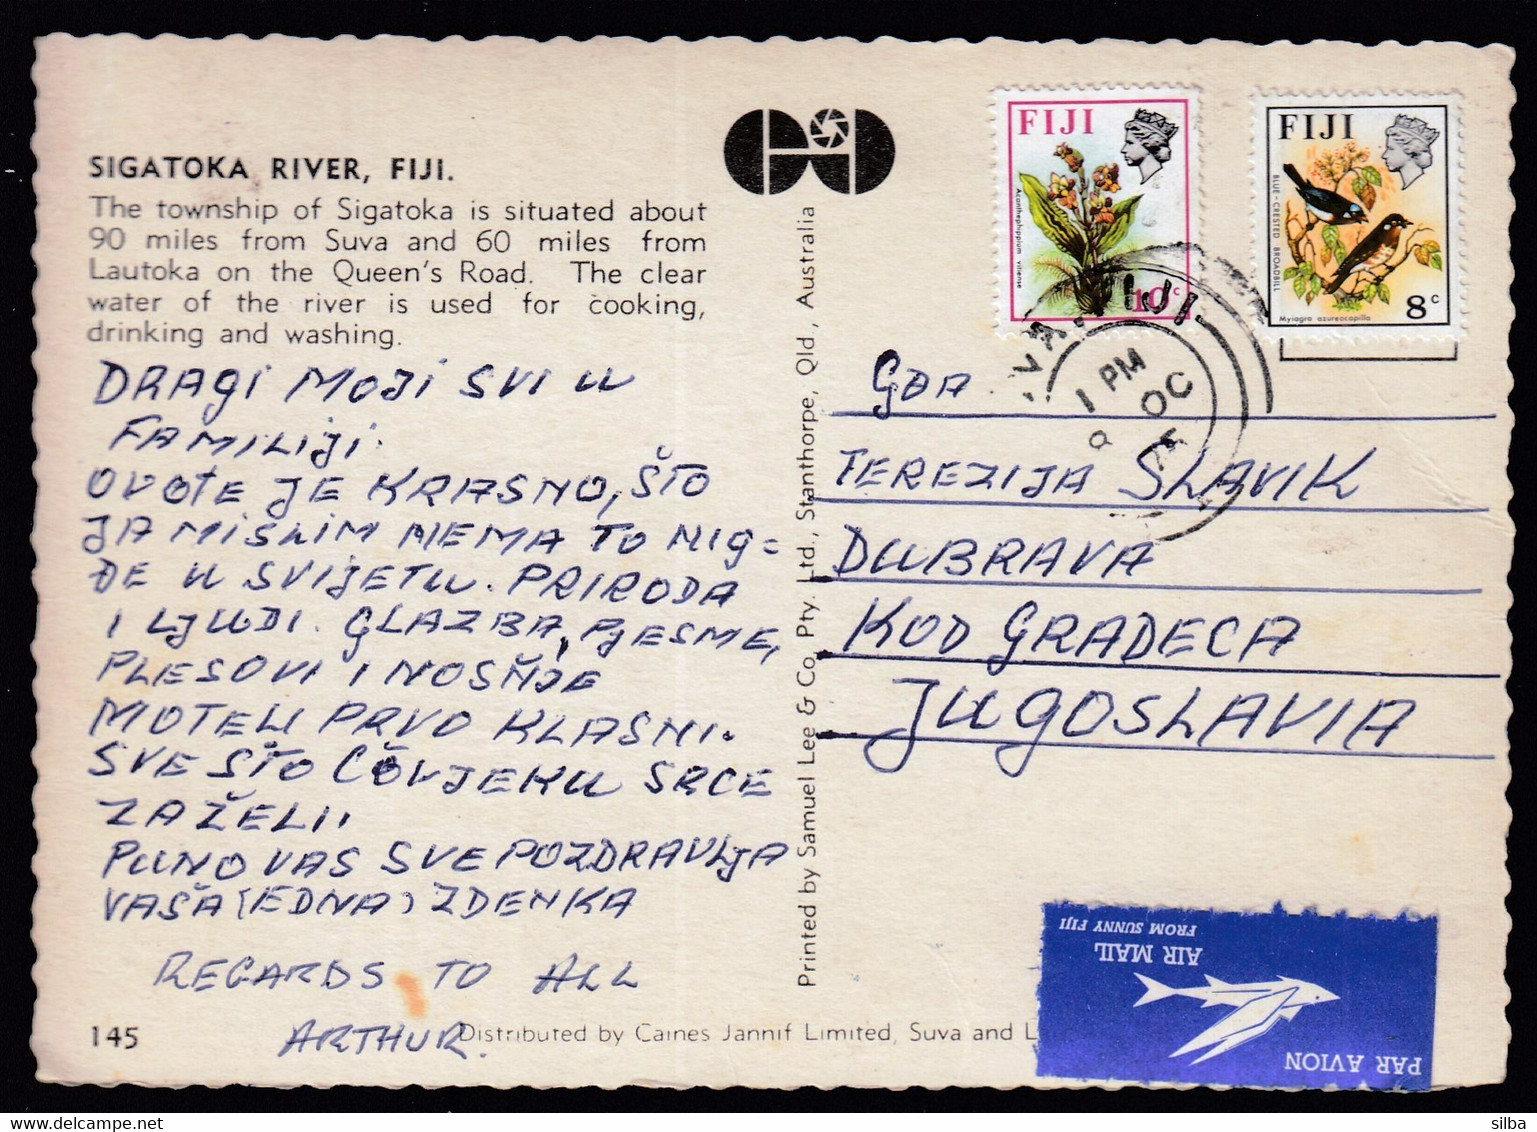 SIGATOKA RIVER, FIJI.
The township of Sigatoka is situated about
90 miles from Suva and 60 miles from
Lautoka on the Queen's Road. The clear
water of the river is used for cooking,
drinking and washing.
DRAGI MOJI SVI U
FAMILIJI.
OVO TE JE KRASNO, ŠTO
JA MISLIM NEMA TO NIG=
ĐE U SVIJETU. PRIRODA
I LJUDI. GLAZBA, PJESME,
PLESOVI I NOŠNJE
MOTELI PRVO KLASNI.
SVE ŠTO ČOVJEKU SRCE
ZAŽELI!
PUNO VAS SVE POZDRAVLJA
VAŠA (EDNA) ZDENKA
REGARDS TO ALL
ARTHUR.
145
Distributed by Caines Jannif Limited, Suva and L
Printed by Samuel Lee & Co. Pty. Ltd., Stanthorpe, Qld., Australia
FIJI
Acanthephippium vitiense
10c
FIJI
BLUE-CRESTED BROADBILL
Myiagra azureocapilla
8c
UVA. FIJI.
1 PM
OC
GĐA.
TEREZIJA SLAVIK
DUBRAVA
KOD GRADECA
JUGOSLAVIA
AIR MAIL
FROM SUNNY FIJI
PAR AVION
silba